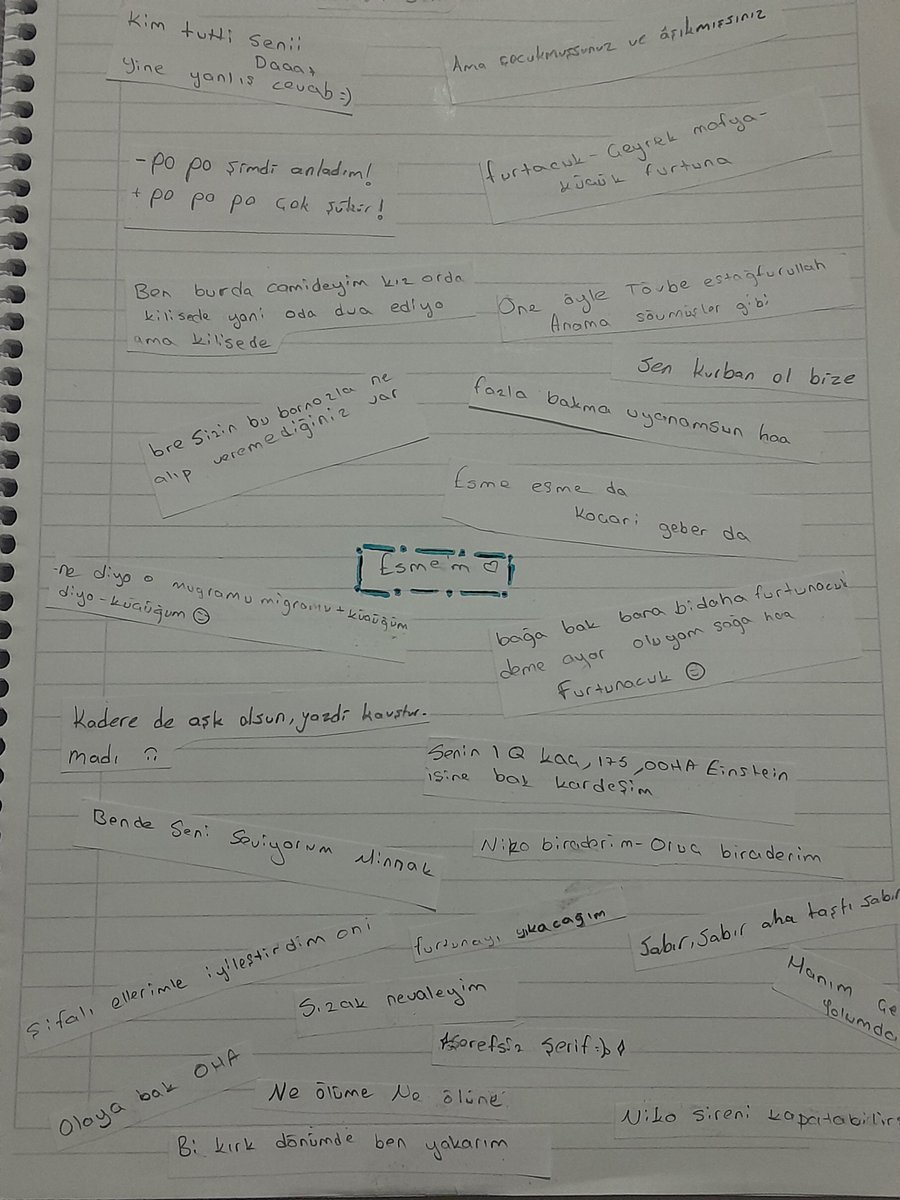 Kim tutti senii
Daaa,
Yine yanlış cevab :)
Ama çocukmuşsunuz ve âşıkmışsınız
- po po şimdi anladım!
+ po po po çok şükür!
furtacuk - Çeyrek mafya -
küçük furtuna
Ben burda camideyim kız orda
kilisede yani oda dua ediyo
ama kilisede
One öyle Tövbe estağfurullah
Anama sövmüşler gibi
Sen kurban ol bize
bre sizin bu bornozla ne
alıp veremediğiniz var
fazla bakma uyanamsun haa
Esme esme da
Koçari geber da
Esme'm ♡
-ne diyo o mugramu migramu + küçüğüm
diyo - küçüğüm ☺
bağa bak bara bidaha furtunacuk
deme ayar oluyom sağa haa
Furtunacuk ☺
Kadere de aşk olsun, yazdi kavuştur.
madı :(
Senin IQ kaç, 175, OOHA Einstein
işine bak kardeşim
Bende Seni Seviyorum Minnak
Niko biraderim - Oruç biraderim
Şifalı ellerimle iyileştirdim oni
furtunayı yıkacağım
Sabır, Sabır aha taştı sabır
Sızak nevaleyim
Hanım Ge
Yolumda
Şerefsiz Şerif :)
Olaya bak OHA
Ne ölüme Ne ölüne
Niko sireni kapatabilir
Bi kırk dönümde ben yakarım